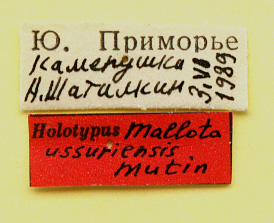 Ю. Приморье
Каменушка
Н.Шаталкин 3.VII 1989
Holotypus Mallota
ussuriensis
Mutin